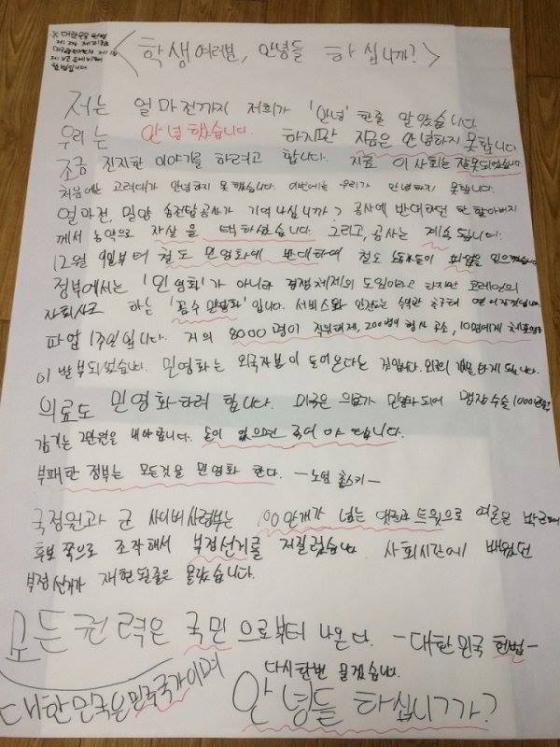 <학생 여러분, 안녕들 하십니까?>
저는 얼마전까지 저희가 '안녕'한줄 알았습니다
우리는 안녕했습니다. 하지만 지금은 안녕하지 못합니다
조금 진지한 이야기를 하려고 합니다. 지금 이 사회는 잘못되었습니다
처음에는 고려대가 안녕하지 못 했습니다. 이번에는 우리가 안녕하지 못합니다.
얼마전, 밀양 송전탑공사가 기억나십니까? 공사에 반대하던 한 할아버지
께서 농약으로 자살을 택하셨습니다. 그리고, 공사는 계속 됩니다.
12월 9일부터 철도 민영화에 반대하여 철도 노동자들이 파업을
정부에서는 '민영화'가 아니라 경쟁체제의 도입이라고 하지만 코레일의
자회사고 하는 '꼼수 민영화'입니다. 서비스와 안전은 수익만
파업 1주일입니다. 거의 8000명이 직위해제, 200명의 형사 고소, 10명에게 체포영장
이 발부되었습니다. 민영화는 외국자본이 들어온다는 것입니다.
의료도 민영화하려 합니다. 미국은 의료가 민영화 되어 맹장수술 1000만원
감기는 2만원을 내야합니다. 돈이 없으면 죽어야 합니다.
부패한 정부는 모든것을 민영화 한다. -노엄 촘스키-
국정원과 군 사이버사령부는 100만개가 넘는 댓글과 트윗으로 여론을 박근혜
후보 쪽으로 조작해서 부정선거를 저질렀습니다. 사회시간에 배웠던
부정선거가 재현될줄은 몰랐습니다.
모든권력은 국민으로부터 나온다. -대한민국 헌법-
대한민국은민주국가이며 다시한번 묻겠습니다.
안녕들 하십니까?